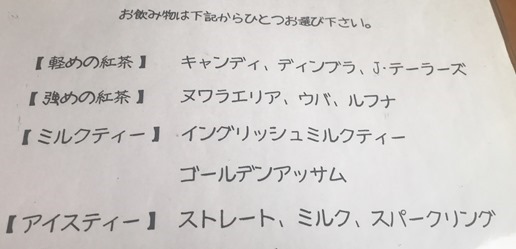 お飲み物は下記からひとつお選び下さい。
【軽めの紅茶】 キャンディ、ディンブラ、J・テーラーズ
【強めの紅茶】 ヌワラエリア、ウバ、ルフナ
【ミルクティー】 イングリッシュミルクティー
ゴールデンアッサム
【アイスティー】 ストレート、ミルク、スパークリング